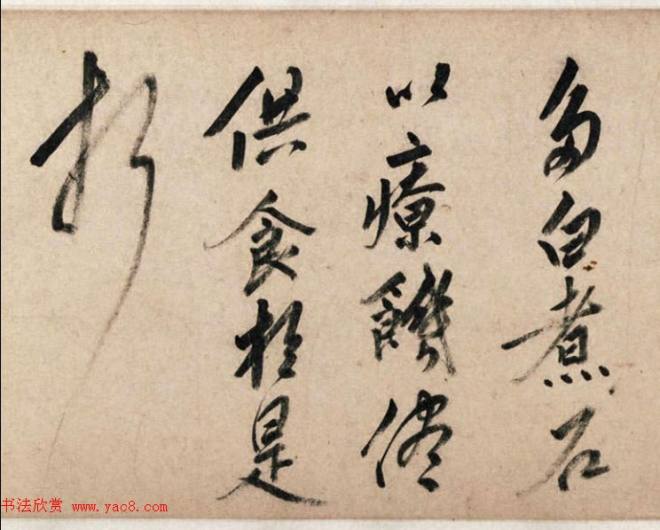 多白煮石
以療饑
供食於是
折
书法欣赏 www.yac8.com